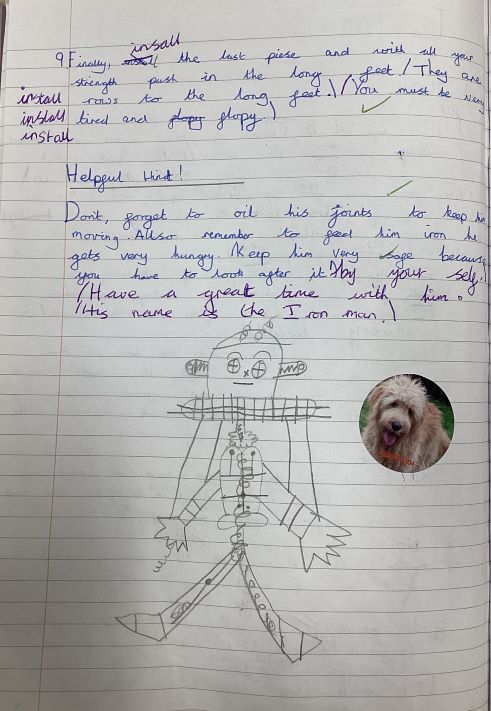 insall
9 Finally, the last piese and with all your
strength push in the long feet! (They are
install rows to the long feet.) (You must be very
install tired and glopy glopy.)
install
Helpgul Hint!
Dont, forget to oil his joints to keep him
moving. Allso remember to feed him iron he
gets very hungry. Keep him very sage because
you have to look after it by your self.
(Have a great time with him.
His name is the Iron man.)